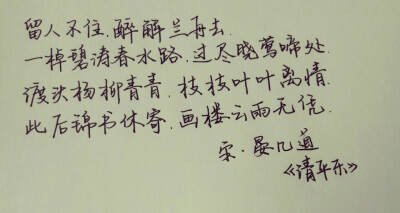 留人不住.醉解兰舟去.
一棹碧涛春水路.过尽晓莺啼处.
渡头杨柳青青.枝枝叶叶离情.
此后锦书休寄.画楼云雨无凭.
宋·晏几道
《清平乐》